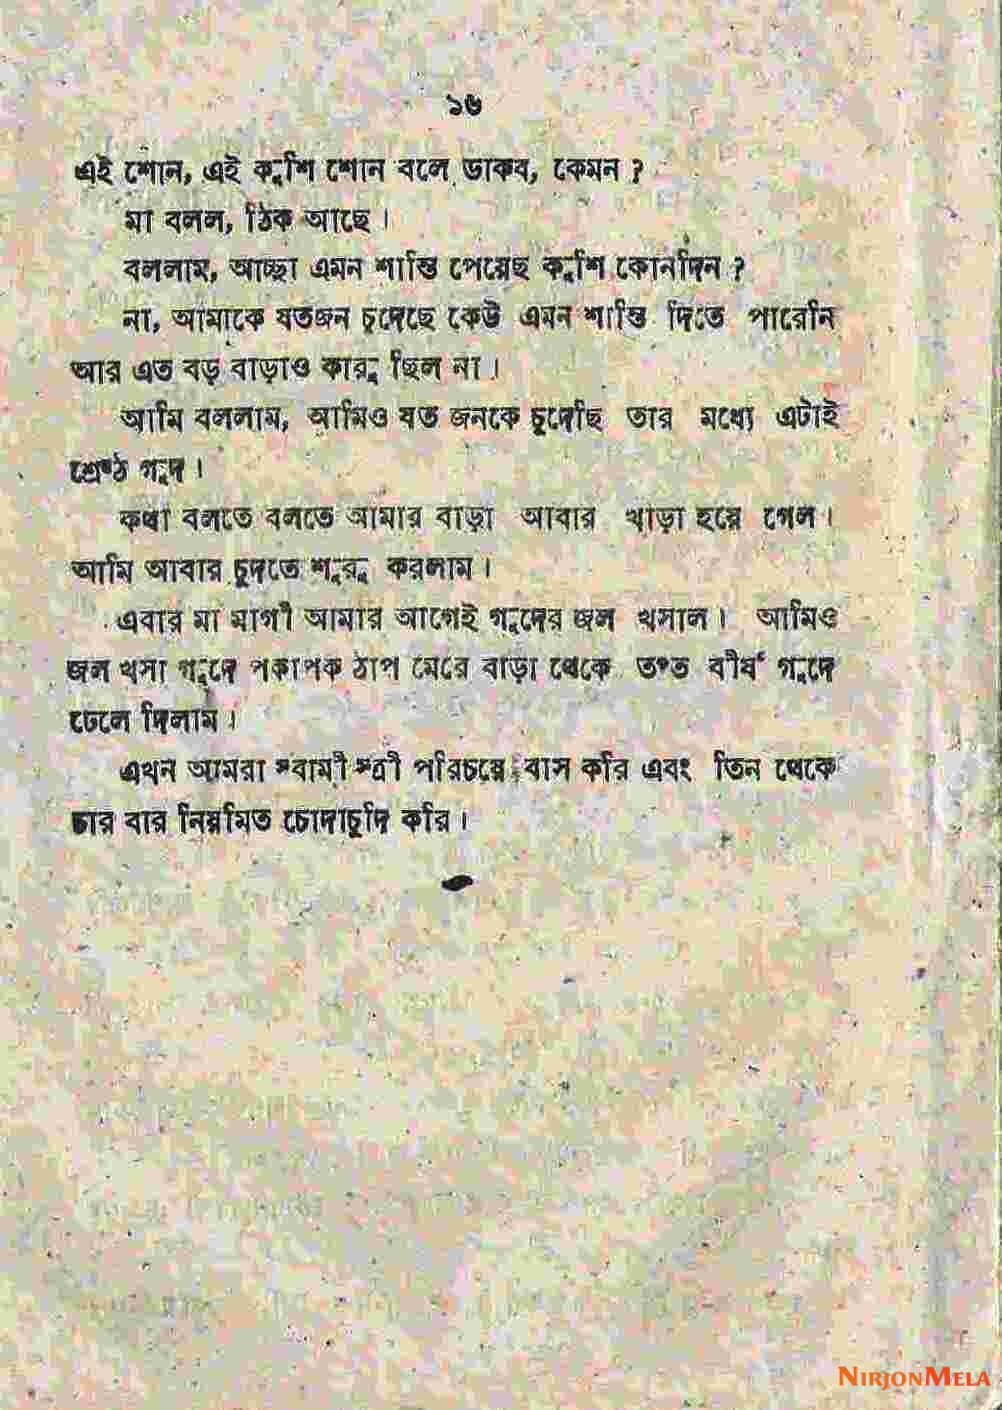 ১৬
এই শোন, এই কুশি শোন বলে ডাকব, কেমন ?
মা বলল, ঠিক আছে ।
বললাম, আচ্ছা এমন শান্তি পেয়েছ কুশি কোনদিন ?
না, আমাকে যতজন চুদেছে কেউ এমন শান্তি দিতে পারেনি
আর এত বড় বাড়াও কারু ছিল না ।
আমি বললাম, আমিও যত জনকে চুদেছি তার মধ্যে এটাই
শ্রেষ্ঠ গুদ ।
কথা বলতে বলতে আমার বাড়া আবার খাড়া হয়ে গেল ।
আমি আবার চুদতে শুরু করলাম ।
এবার মা মাগী আমার আগেই গুদের জল খসাল । আমিও
জল খসা গুদে পকাপক ঠাপ মেরে বাড়া থেকে তপ্ত বীর্য গুদে
ঢেলে দিলাম ।
এখন আমরা স্বামী স্ত্রী পরিচয়ে বাস করি এবং তিন থেকে
চার বার নিয়মিত চোদাচুদি করি ।
NIRJONMELA